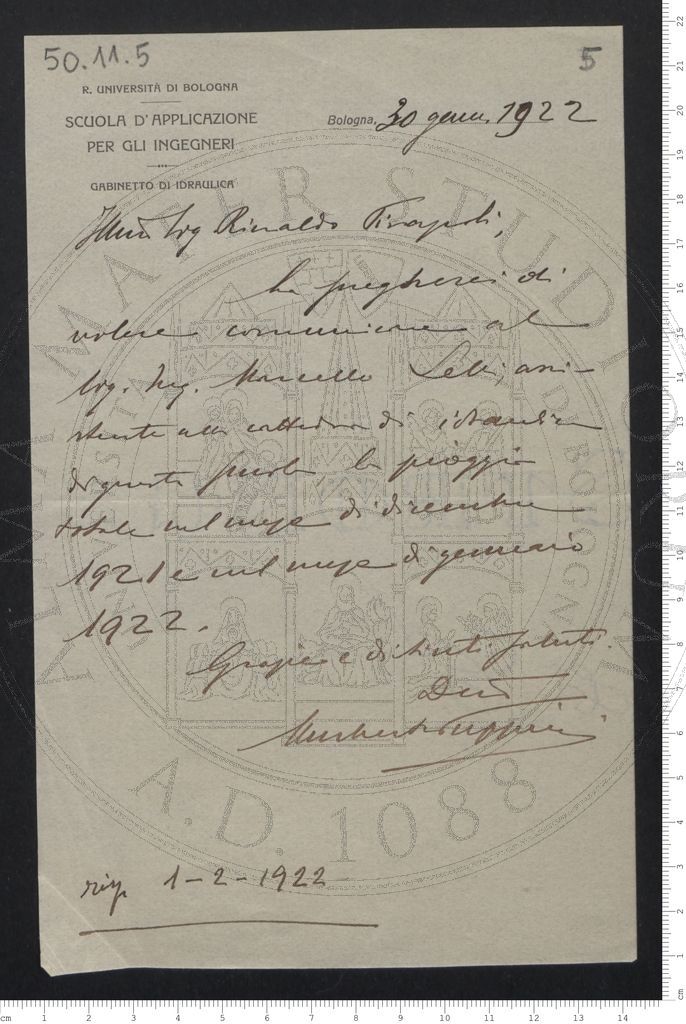 50.11.5
5
R. UNIVERSITÀ DI BOLOGNA
SCUOLA D'APPLICAZIONE
PER GLI INGEGNERI
GABINETTO DI IDRAULICA
Bologna, 30 genn. 1922
Sig Rinaldo
La pregherei di
volere comunicare al
Sig. Ing. Marcello Lelli, assi-
stente alla cattedra di idraulica
di questa Scuola, la pioggia
totale nel mese di dicembre
1921 e nel mese di gennaio
1922.
Grazie e distinti saluti.
Dev
Umberto Puppini
risp 1-2-1922
ALMA MATER STUDIORUM
A.D. 1088